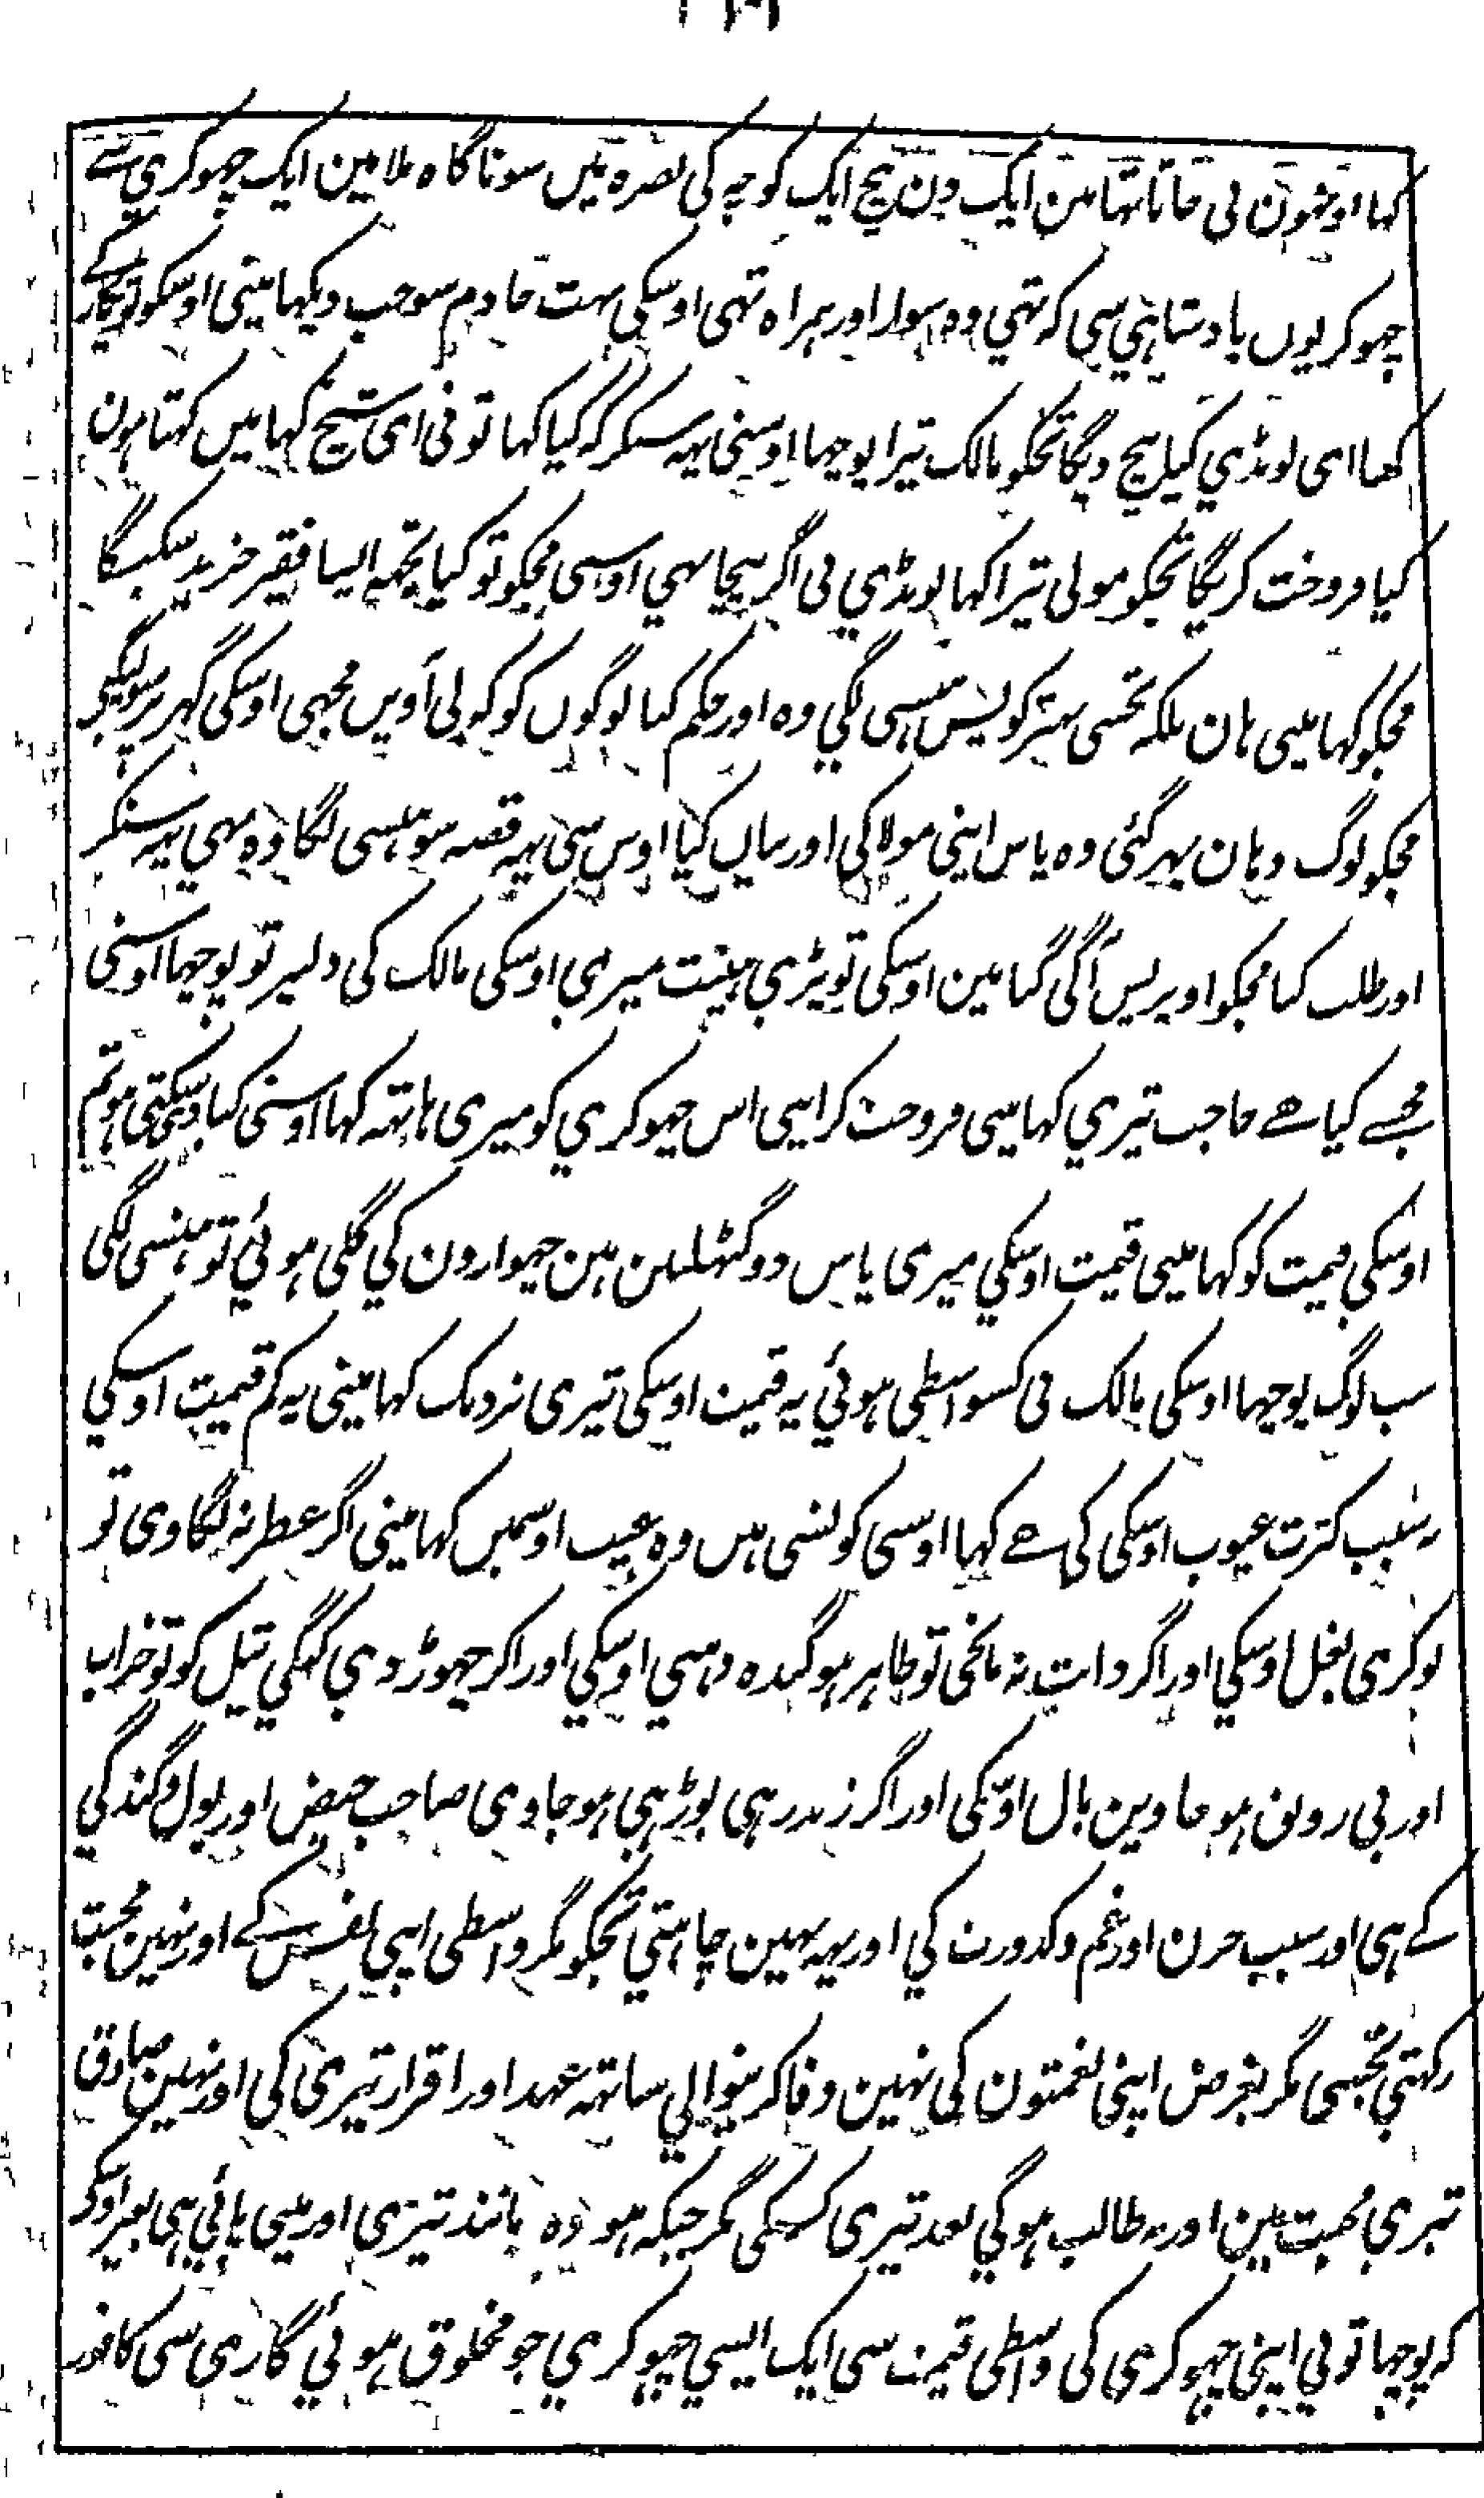 کہا اونھون نی جاتا تہا مین ایک دن بیچ ایک کوچہ کی بصرہ میں سو ناگاہ ملا مین ایک چھوکری سے
چھوکریوں بادشاہی سی کہ تہی وہ سوار اور ہمراہ تہی اوسکی بہت خادم سو جب دیکہا مینی اوسکو تو پکار کے
کہا ای لونڈی کیا بیچ دیگا تجکو مالک تیرا پوچہا اوسنی یہہ سنکر کہ کیا کہا تونی ای شیخ کہا میں کہتا ہون
کیا فروخت کریگا تجکو مولی تیرا کہا لونڈی نی اگر بیچا بہی اوسی مجکو تو کیا تجہہ ایسا فقیر خرید سکیگا
مجکو کہا مینی ہان بلکہ تجھسی بہتر کو پس ہنسی لگی وہ اور حکم کیا لوگوں کو کہ لی آویں مجہی اوسکی گہر پر سو لیگئے
مجکو لوگ وہان پہر گئی وہ پاس اپنی مولا کی اور بیاں کیا اوس سی یہہ قصہ سو ہنسی لگا وہ بہی یہہ سنکر
اور طلب کیا مجکو اوپر پس آگی گیا مین اوسکی تو پڑی ہیبت میری اوسکی مالک کی دلپر تو پوچہا اوسنی
مجسے کیا ہے حاجب تیری کہا مینی فروخت کر اسی اس چھوکری کو میری ہاتہہ کہا اوسنی کیا دیسکتی ہو تم
اوسکی قیمت کو کہا مینی قیمت اوسکی میری پاس دو گٹھلیان ہین چہوارون کی گلی ہوئی تو ہنسی لگی
سب لوگ پوچہا اوسکی مالک نی کسواسطی ہوئی یہ قیمت اوسکی تیری نزدیک کہا مینی یہ کم قیمت اوسکی
بہ سبب کثرت عیوب اوسکی کی ہے کہا اوسی کونسی ہیں وہ عیب اوسمیں کہا مینی اگر عطر نہ لگاوی تو
بو کری بغل اوسکی اور اگر دانت نہ مانجی تو ظاہر ہو گندہ دہنی اوسکی اور اگر چہوڑ دی کنگی تیل کو تو خراب
اور بی رونق ہو جاوین بال اوسکی اور اگر زندہ رہی بوڑہی ہو جاوی صاحب حیض اور بول و گندگی
کے ہی اور سبب حزن اور غم و کدورت کی اور یہہ نہین چاہتی تجکو مگر واسطی اپنی نفس کے اور نہین محبت
رکہتی تجہسی مگر بغرض اپنی نعمتون کی نہین وفا کرینوالی ساتہہ عہد اور اقرار تیری کی اور نہین صادق
تیری محبت مین اور نہ طالب ہوگی بعد تیری کسیکی مگر جبکہ ہو وہ مانند تیری اور مینی پائی ہی بغیر اوسکے
کہ پوچہا تونی اپنی چہوکری کی واسطی قیمت سی ایک ایسی چہوکری جو مخلوق ہوئی گاری سی کافور